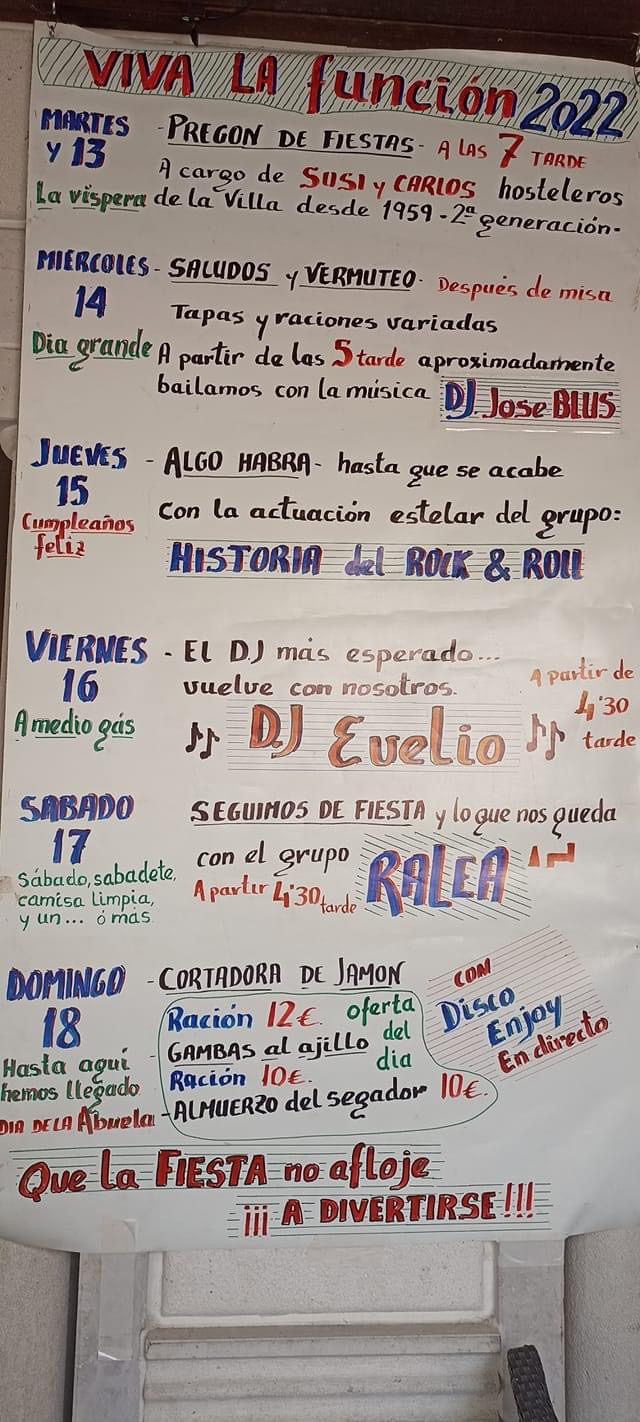 VIVA LA función 2022
MARTES - PREGON DE FIESTAS - A LAS 7 TARDE
Y 13 A cargo de SUSI y CARLOS hosteleros
La vispera de la Villa desde 1959 - 2ª generación.
MIERCOLES - SALUDOS y VERMUTEO - Después de misa
14 Tapas y raciones variadas
Dia grande A partir de las 5 tarde aproximadamente
bailamos con la música DJ Jose BLUS
JUEVES - ALGO HABRA - hasta que se acabe
15
Cumpleaños Con la actuación estelar del grupo:
feliz
HISTORIA del ROCK & ROLL
VIERNES - El DJ más esperado...
16 vuelve con nosotros.
A partir de
4'30
tarde
A medio gás DJ Evelio
SABADO SEGUIMOS DE FIESTA y lo que nos queda
17 con el grupo RALEA
Sábado, sabadete,
camisa limpia, A partir 4'30 tarde
y un... ó más
DOMINGO - CORTADORA DE JAMON
18 Ración 12€. oferta
del
dia
CON
Disco
Enjoy
En directo
Hasta aquí - GAMBAS al ajillo
hemos llegado Ración 10€.
DIA DE LA Abuela - ALMUERZO del segador 10€.
Que la FIESTA no afloje
¡¡¡ A DIVERTIRSE !!!